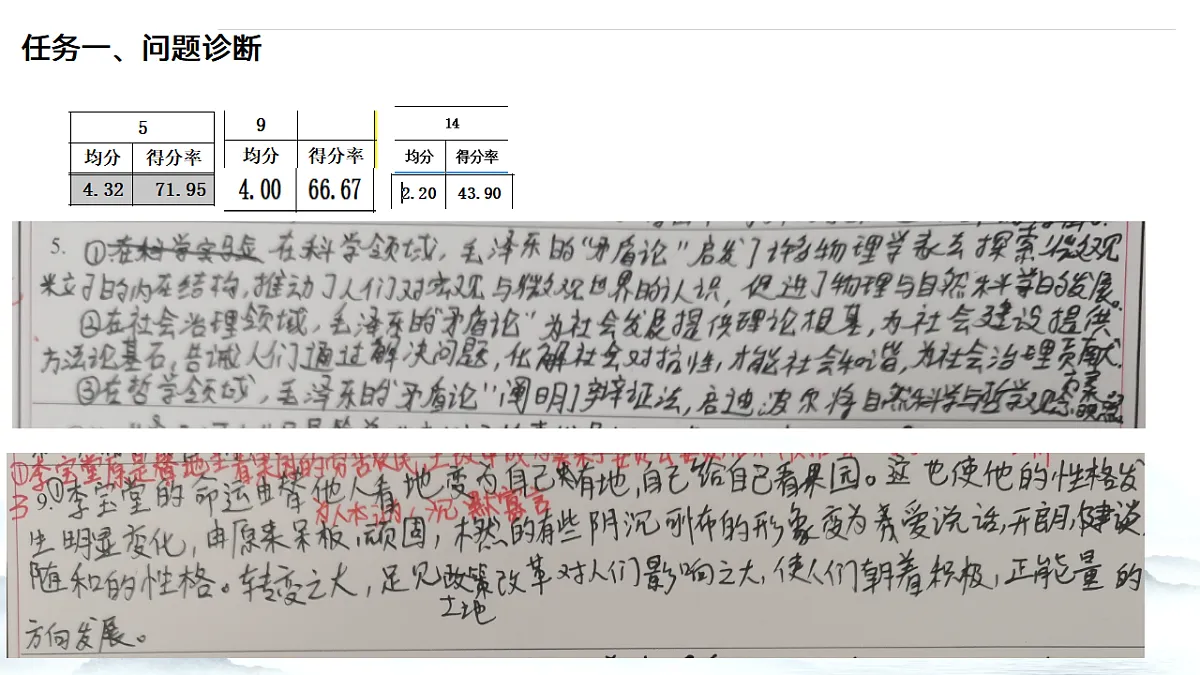 任务一、问题诊断
5
均分 得分率
4.32 71.95
9
均分 得分率
4.00 66.67
14
均分 得分率
2.20 43.90
5. ①在科学领域,毛泽东的“矛盾论”启发了许多物理学家去探索微观
粒子的内在结构,推动了人们对宏观与微观世界的认识,促进了物理与自然科学的发展。
②在社会治理领域,毛泽东的“矛盾论”为社会发展提供理论根基,为社会建设提供
方法论基石,告诫人们通过解决问题,化解社会对抗性,才能社会和谐,为社会治理贡献
③在哲学领域,毛泽东的“矛盾论”阐明了辩证法,启迪波尔将自然科学与哲学观念
①李宝堂原是替地主看果园的
9.①李宝堂的命运由替他人看地变为自己有地,自己给自己看果园。这也使他的性格发
为人本过的,沉默寡言
生明显变化,由原来呆板,顽固,木然的有些阴沉可怖的形象变为喜爱说话,开朗,健谈
随和的性格。转变之大,足见政策改革对人们影响之大,使人们朝着积极,正能量的
土地
方向发展。